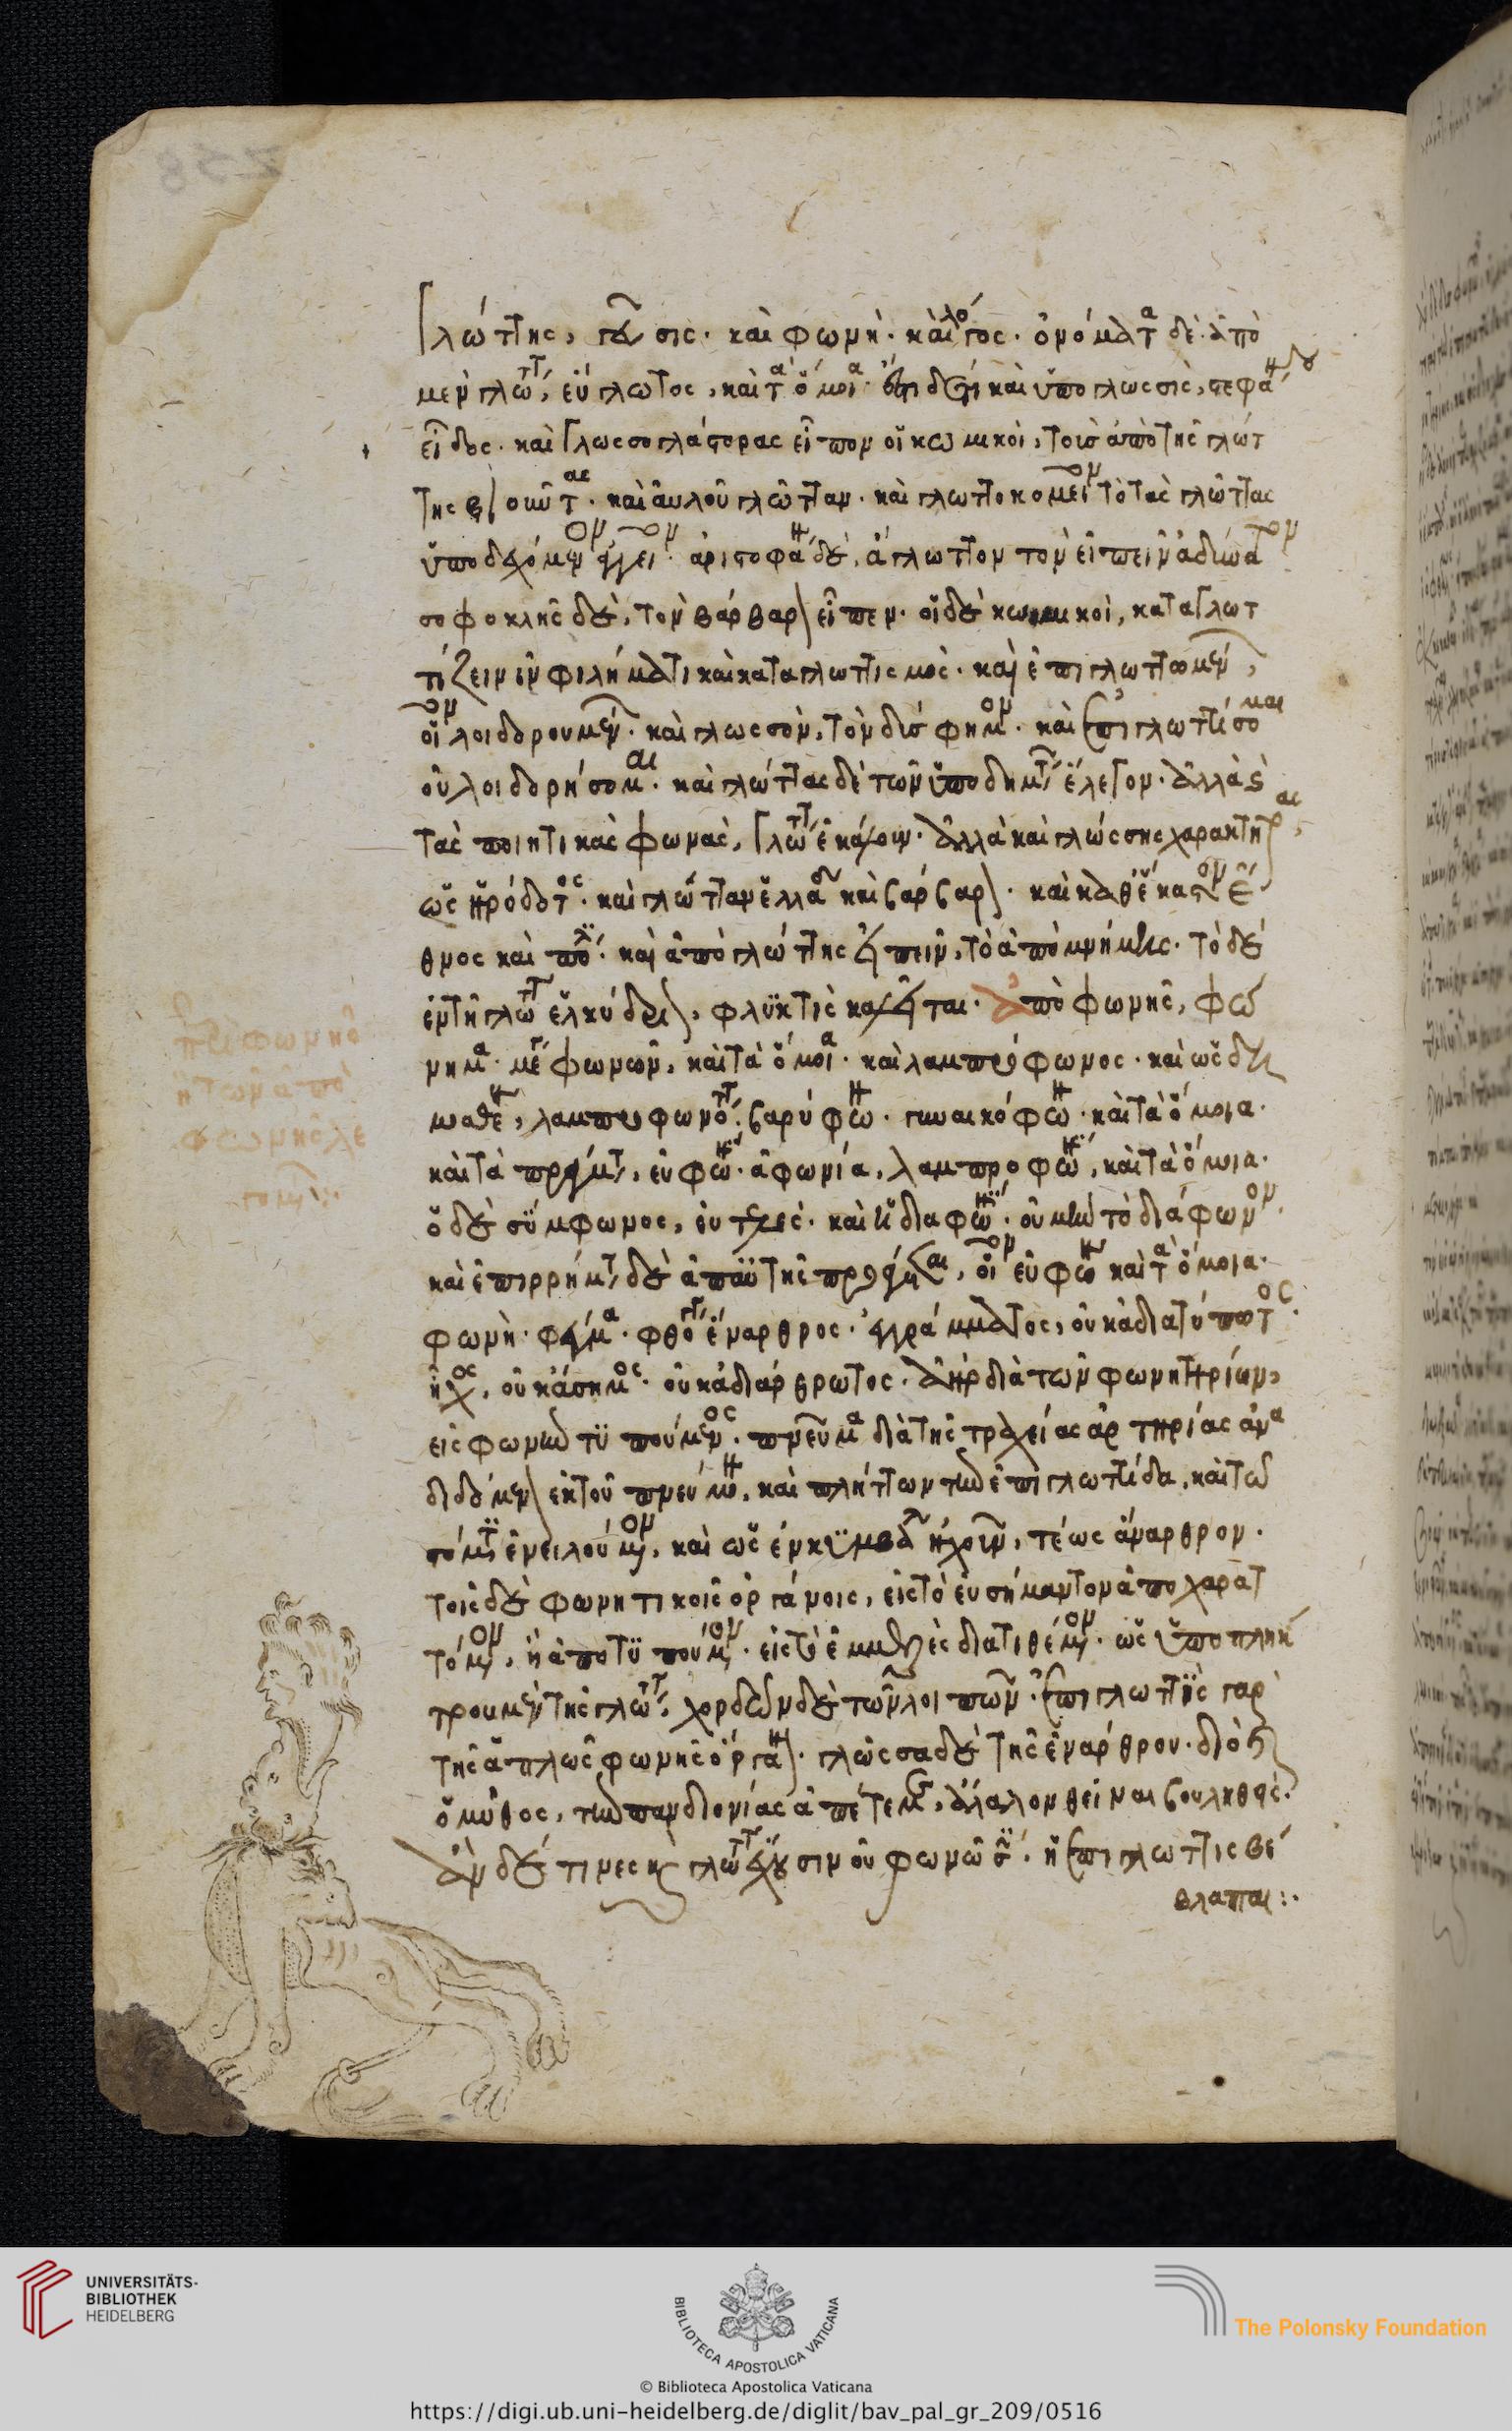 238
Γλώττης, γεῦσις· καὶ φωνὴ· καὶ λόγος· ὀνόματα δὲ ἀπὸ
μὲν γλώττ, εὔγλωτος, καὶ τὰ ὅμοια· καὶ ὑπογλωσσὶς, στεφάνου
εἶδος· καὶ Γλωσσογάστορας εἶπον οἱ κωμικοὶ, τοὺς ἀπὸ τῆς γλώτ
της βιοῦντας· καὶ αὐλοῦ γλῶτταν· καὶ γλωττοκομεῖον τὸ τὰς γλώττας
ὑποδεχόμενον ἀγγεῖον· ἀριστοφάνης δὲ, ἄγλωττον τὸν εἰπεῖν ἀδύνατον
σοφοκλῆς δὲ, τὸν βάρβαρον εἶπεν· οἱ δὲ κωμικοὶ, καταγλωτ
τίζειν ἐν φιλήματι καὶ καταγλωττισμός· καὶ ἐπιγλωττωμένη,
οἷον λοιδορουμένη· καὶ γλωσσὸν, τὸν δύσφημον· καὶ ἐπιγλωττίσομαι
οὐ λοιδορήσομαι· καὶ γλώττας δὲ τῶν ὑποδημάτ ἔλεγον· ἀλλὰ καὶ
τὰς ποιητικὰς φωνὰς, Γλώττ ἐκάλουν· ἀλλὰ καὶ γλώσσης χαρακτῆρας,
ὡς ἡρόδοτος· καὶ γλῶτταν ἑλλα καὶ βάρβαρον· καὶ καθ' ἕκαστον ἔ
θνος καὶ πόλ· καὶ ἀπὸ γλώττης εἰπεῖν, τὸ ἀπὸ μνήμης· τὸ δὲ
ἐν τῇ γλώττ ἑλκύδριον, φλυκτὶς καλεῖται· ἀπὸ φωνῆς, φώ
νημα· μέγ φωνῶν, καὶ τὰ ὅμοια· καὶ λαμπρόφωνος· καὶ ὡς δη
μοσθένης, λαμπροφωνότ. βαρύφων· γυναικόφων· καὶ τὰ ὅμοια·
καὶ τὰ πράγματ, εὐφων· ἀφωνία, λαμπροφων, καὶ τὰ ὅμοια·
ὁ δὲ σύμφωνος, εὐτελές· καὶ ἡ διαφων· οὐ μὴν τὸ διάφωνον·
καὶ ἐπιρρήματ δὲ ἀπ' αὐτῆς πράγματα, οἷον εὐφων καὶ τὰ ὅμοια·
φωνὴ· φθέγμα· φθόγγ ἔναρθρος· ἀγράμματος, οὐκ ἀδιατύπωτος·
ἦχος, οὐκ ἄσημος· οὐκ ἀδιάρθρωτος· ἀὴρ διὰ τῶν φωνητηρίων,
εἰς φωνὴν τυπούμενος· πνεῦμα διὰ τῆς τραχείας ἀρτηρίας ἀνα
διδόμενον ἐκ τοῦ πνεύμον, καὶ πλῆττον τὴν ἐπιγλωττίδα, καὶ τῷ
στόματι ἐνειλούμενον, καὶ ὡς ἐν κυμβάλ ἠχοῦν, τέως ἄναρθρον·
τοῖς δὲ φωνητικοῖς ὀργάνοις, εἰς τὸ εὐσήμαντον ἀποχαρατ
τόμενον, ἢ ἀποτυπούμενον· εἰς τὸ ἐμμελὲς διατιθέμενον· ὡς ὑπὸ πλήκ
τρου μὲν τῆς γλώττ, χορδῶν δὲ τῶν λοιπῶν· ἐπιγλωττὶς γὰρ
τῆς ἁπλῶς φωνῆς ὄργανον· γλῶσσα δὲ τῆς ἐνάρθρου· διὸ καὶ
ὁ μῦθος, τὴν πανδιονίας ἀπέτεμεν, ἄλαλον θεῖναι βουληθεὶς·
ἂν δέ τινες καὶ γλῶττ ἔχουσιν οὐ φωνῶσι· ἡ ἐπιγλωττὶς βέ
βλαπται:·
περὶ φωνῆς
ἢ τῶν ἀπὸ
φωνῆς λε
γομένων:
UNIVERSITÄTS-
BIBLIOTHEK
HEIDELBERG
BIBLIOTECA APOSTOLICA VATICANA
© Biblioteca Apostolica Vaticana
The Polonsky Foundation
https://digi.ub.uni-heidelberg.de/diglit/bav_pal_gr_209/0516